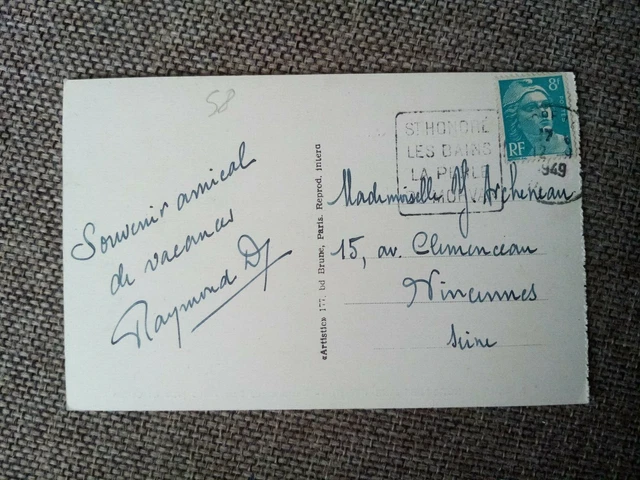 58
Souvenir amical
de vacances
Raymond
«Artistic» 177, bd Brune, Paris. Reprod, interd
ST HONORÉ
LES BAINS
LA PERLE
DU MORVAN
8F
RF
1949
Mademoiselle
15, av. Clemenceau
Vincennes
Seine